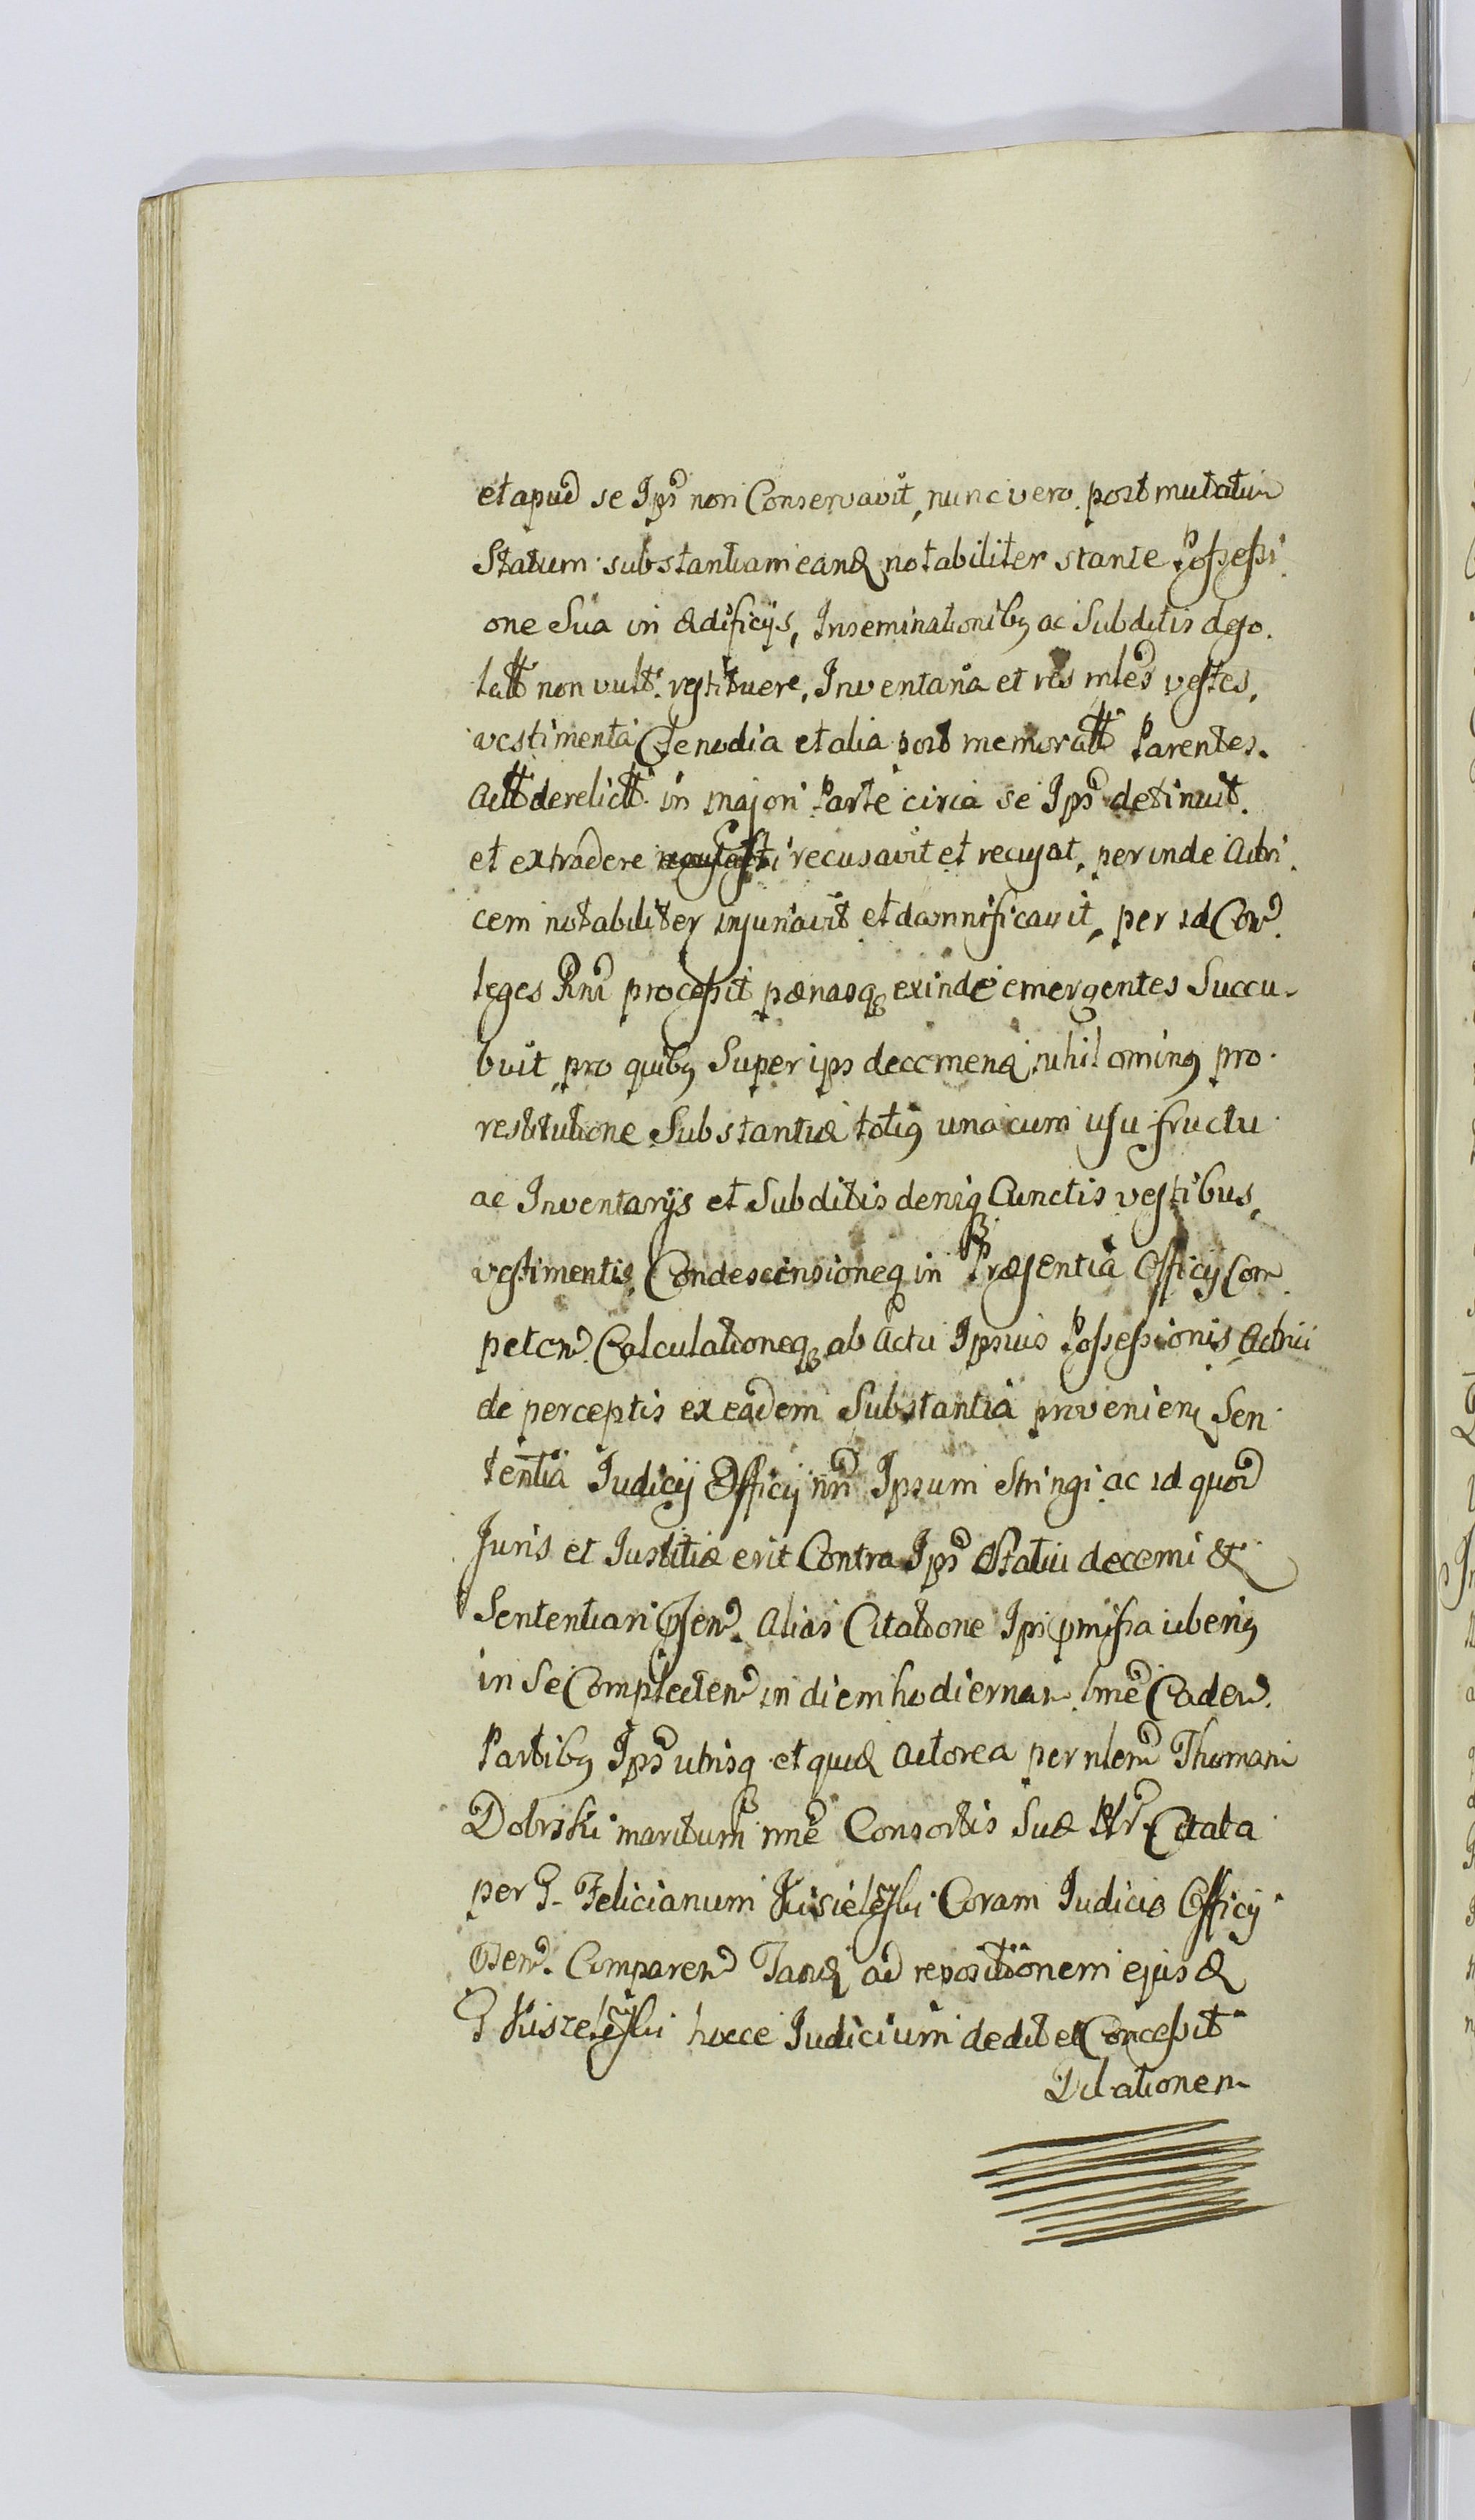 et apud se Ips non Conservavit, nunc vero post mutatum
Statum substantiam eandq notabiliter stante Possessi
one Sua in ædificijs, Inseminationibq ac Subditis deso
latt non vult restituere, Inventaria et res mles vestes,
vestimenta Clenodia et alia post memoratt Parentes
Actt derelictt in majori Parte circa se Ips detinuit
et extradere recusavit et recusat, perinde Actri
cem notabiliter injuriavit et damnificavit, per id Con
leges Rni processit pænasq exinde emergentes Succu
buit pro quibq Super ips decernena nihilominq pro
restitutione Substantiæ totiq una cum usu fructu
ac Inventarijs et Subditis deniq Cunctis vestibus,
vestimentis Condescensioneq in Præsentia Officij Com
peten Calculationeq ab Actu Ipsius Possessionis
de perceptis ex eadem Substantia provenien Sen
tentia Judicij Officij nri Ipsum Stringi ac id quod
Juris et Justitiæ erit Contra Ips Statui decerni &
Sententiari Psen. Alias Citatione Ipsi pmissa uberiq
in Se Complecten in diem hodiernam lme Caden.
Partibq Ips utrisq et quid Actorea per nlem Thomam
Dobrski maritum nne Consortis Suæ Citata
per G. Felicianum Kisielesski Coram Judicio Officij
Psen. Comparen Tandq ad repositionem ejusd
G Kiszelesski hocce Judicium dedit et Concessit
Dilationem